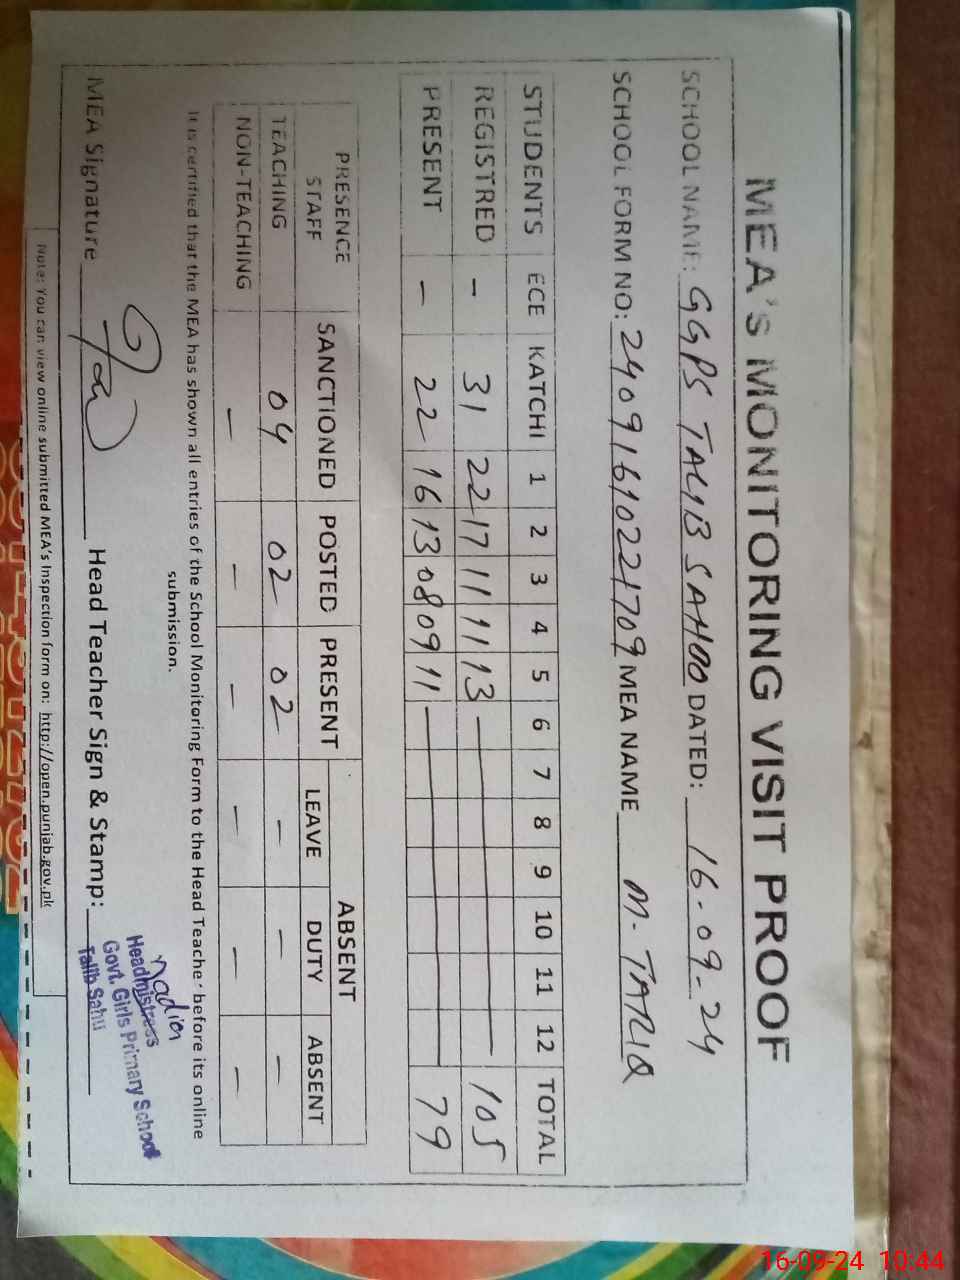 MEA's MONITORING VISIT PROOF
SCHOOL NAME: GGPS TALIB SAHOO DATED: 16-09-24
SCHOOL FORM NO: 24091610221709 MEA NAME M. TARIQ
STUDENTS ECE KATCHI 1 2 3 4 5 6 7 8 9 10 11 12 TOTAL
REGISTRED - 31 22 17 11 11 13 — 105
PRESENT - 22 16 13 08 09 11 — 79
PRESENCE STAFF SANCTIONED POSTED PRESENT ABSENT
LEAVE DUTY ABSENT
TEACHING 04 02 02 - - -
NON-TEACHING - - - - - -
It is certified that the MEA has shown all entries of the School Monitoring Form to the Head Teacher before its online
submission.
Nadia
Headmistress
Govt. Girls Primary School
Talib Sahu
MEA Signature Head Teacher Sign & Stamp:
Note: You can view online submitted MEA's Inspection form on: http://open.punjab.gov.pk
16-09-24 10:44